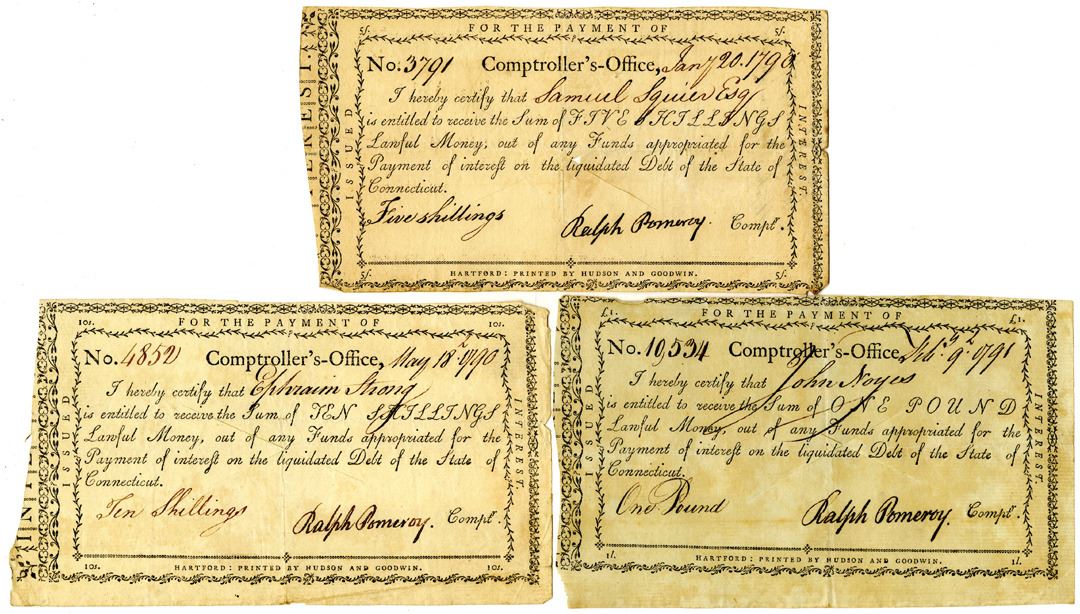 FOR THE PAYMENT OF
5/. 5/.
No. 3791 Comptroller's-Office, Jany 20. 1790
I hereby certify that Samuel Squier Esq
is entitled to receive the Sum of FIVE SHILLINGS
Lawful Money, out of any Funds appropriated for the
Payment of interest on the liquidated Debt of the State of
Connecticut.
Five shillings Ralph Pomeroy. Comptr.
ISSUED
INTEREST.
HARTFORD: PRINTED BY HUDSON AND GOODWIN.
5/. 5/.
FOR THE PAYMENT OF
10s. 10s.
No. 4852 Comptroller's-Office, May 18. 1790
I hereby certify that Ephraim Strong
is entitled to receive the Sum of TEN SHILLINGS
Lawful Money, out of any Funds appropriated for the
Payment of interest on the liquidated Debt of the State of
Connecticut.
Ten Shillings Ralph Pomeroy. Comptr.
ISSUED
INTEREST.
HARTFORD: PRINTED BY HUDSON AND GOODWIN.
10s. 10s.
FOR THE PAYMENT OF
£1. £1.
No. 10,534 Comptroller's-Office, Feby 9. 1791
I hereby certify that John Noyes
is entitled to receive the Sum of ONE POUND
Lawful Money, out of any Funds appropriated for the
Payment of interest on the liquidated Debt of the State of
Connecticut.
One Pound Ralph Pomeroy. Comptr.
ISSUED
INTEREST.
HARTFORD: PRINTED BY HUDSON AND GOODWIN.
1/. 1/.